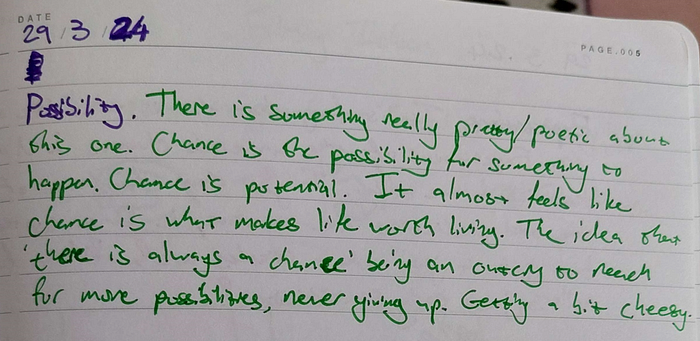 DATE
29 / 3 / 24
PAGE.005
Possibility. There is something really pretty/poetic about
this one. Chance is the possibility for something to
happen. Chance is potential. It almost feels like
chance is what makes life worth living. The idea that
'there is always a chance' being an outcry to reach
for more possibilities, never giving up. Getting a bit cheesy.